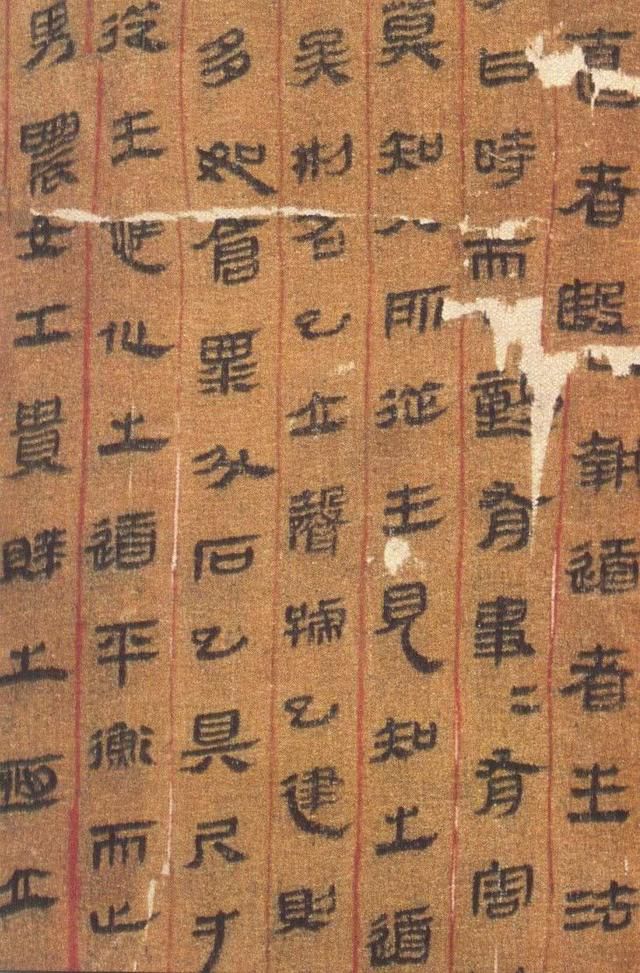 直者殹執道者生法
曰時而動有事=有害
莫知其所從生見知之道
矣刑名已立聲號已建則
多如倉粟斗石已具尺寸
從生應化之道平衡而止
男農女工貴賤之恒立